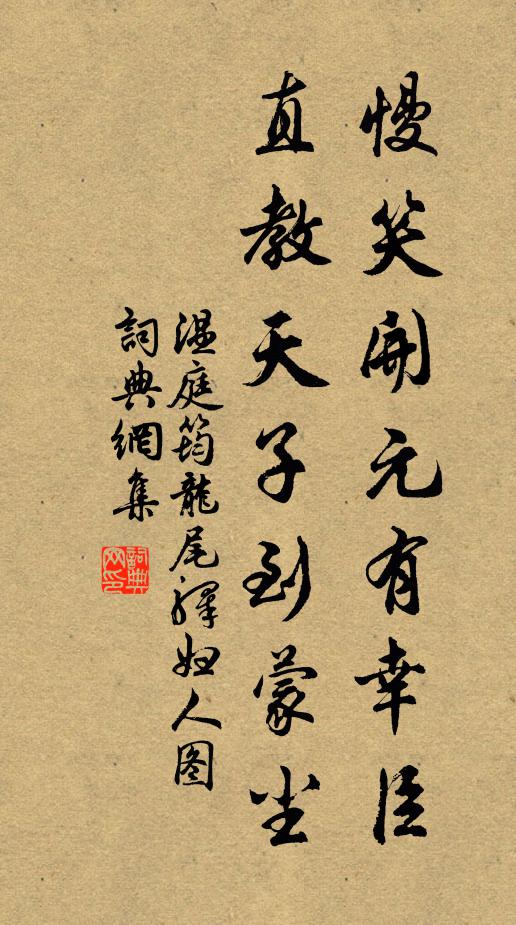 慢笑開元有幸臣
直教天子到蒙尘
温庭筠龍尾驿妇人图
詞典網集
詞典网印